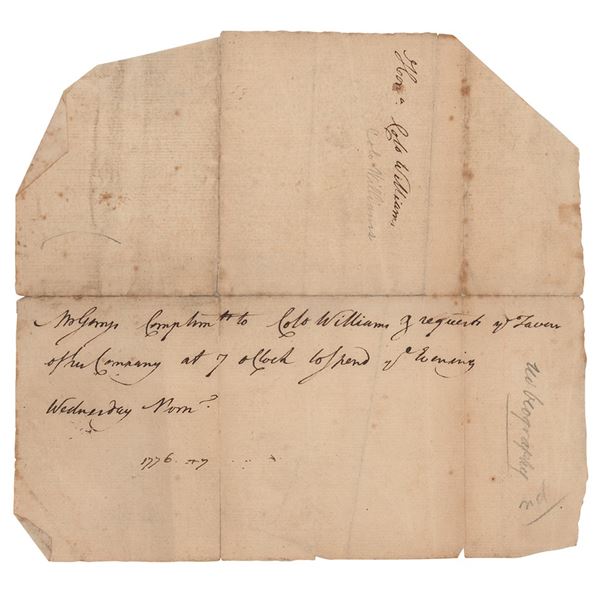 Hon.a Colo Williams
Colo Williams
Complimts to Colo Williams & requests ye Favour
of his Company at 7 oClock to Spend ye Evening
Wednesday Morng
1776
biography